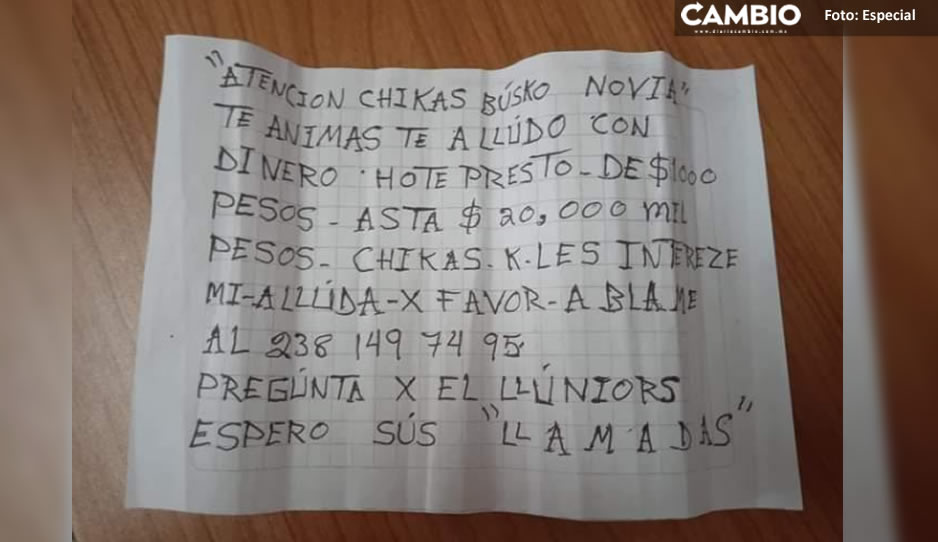 CAMBIO
www.diariocambio.com.mx
Foto: Especial
"ATENCION CHIKAS BÚSKO NOVIA"
TE ANIMAS TE ALLÚDO CON
DINERO · HOTE PRESTO - DE $1000
PESOS - ASTA $ 20,000 MIL
PESOS - CHIKAS - K - LES INTEREZE
MI-ALLLÚDA-X FAVOR-A BLAME
AL 238 149 74 95
PREGÚNTA X EL LLÚNIORS
ESPERO SÚS "LLAMADAS"